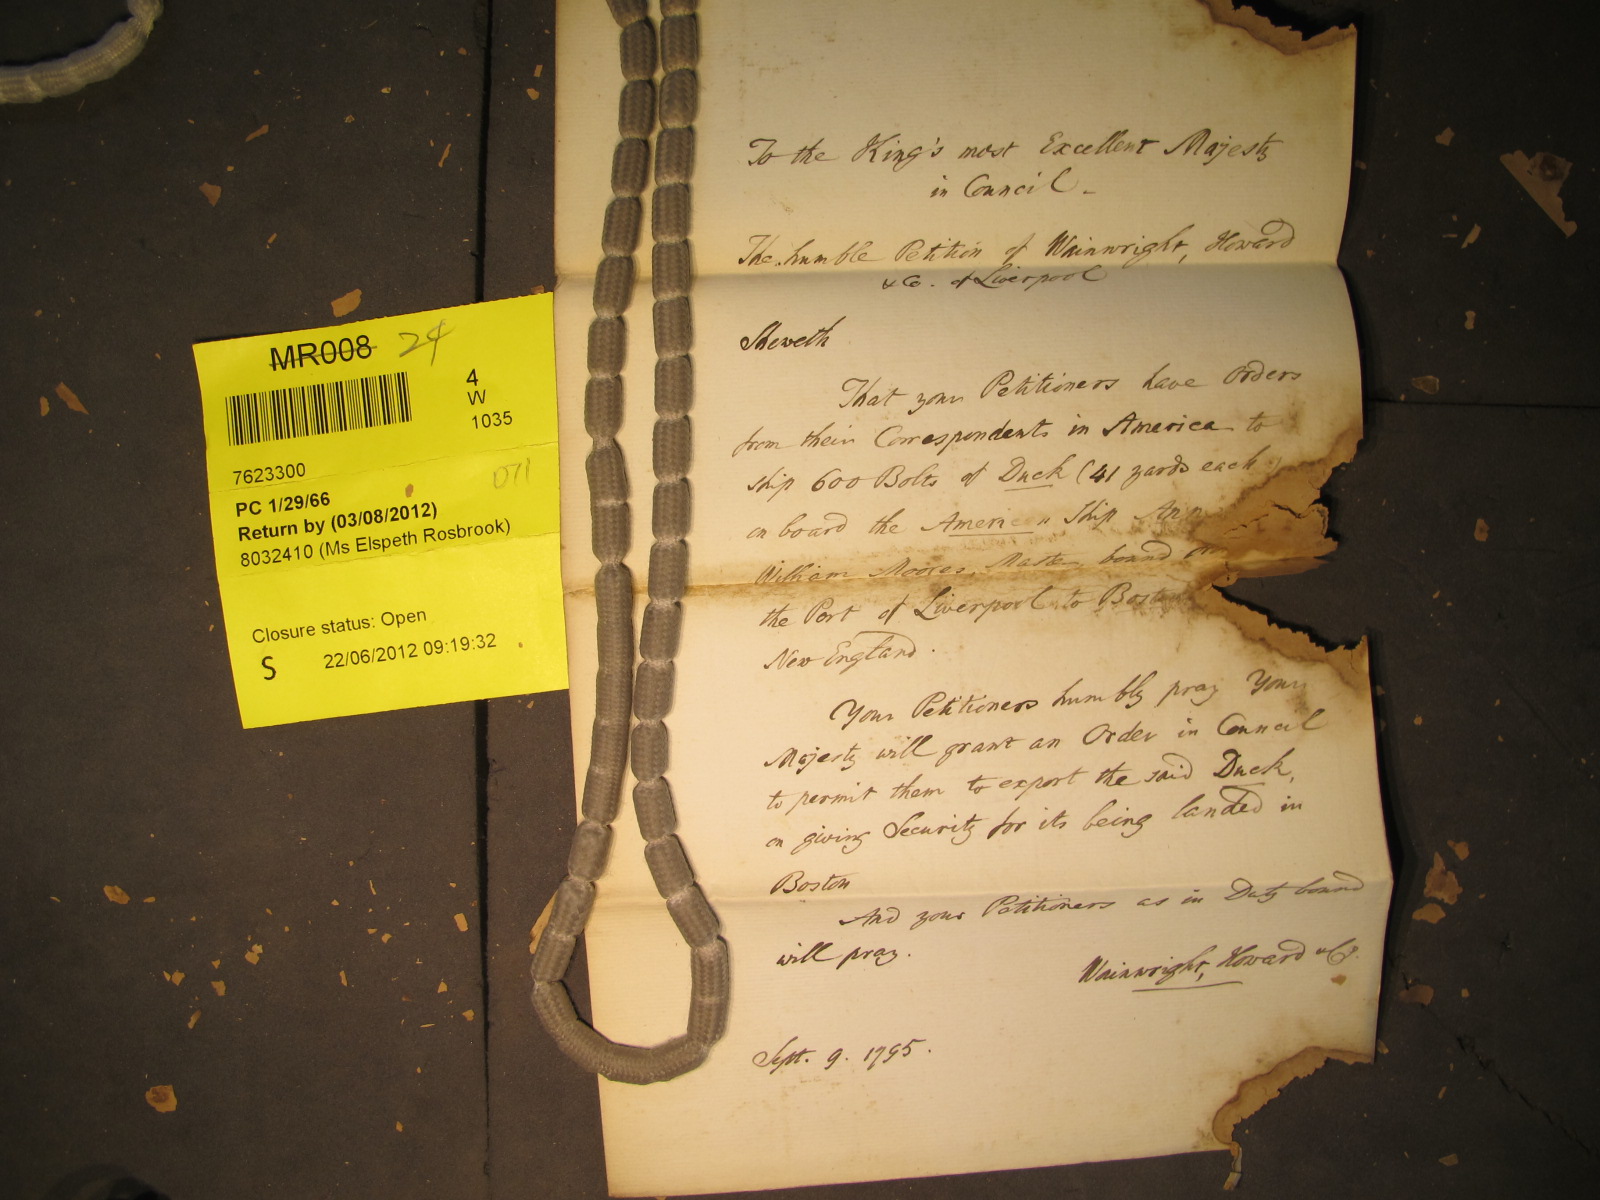 MR008 24
4
W
1035
7623300
071
PC 1/29/66
Return by (03/08/2012)
8032410 (Ms Elspeth Rosbrook)
Closure status: Open
S 22/06/2012 09:19:32
To the King's most Excellent Majesty
in Council -
The humble Petition of Wainwright, Howard
& Co. of Liverpool
Sheweth
That your Petitioners have orders
from their Correspondents in America to
ship 600 Bolts of Duck (41 yards each
on board the American Ship Ann
William Moores, Master, bound
the Port of Liverpool to Boston
New England.
Your Petitioners humbly pray Your
Majesty will grant an Order in Council
to permit them to export the said Duck,
on giving Security for its being landed in
Boston
And your Petitioners as in Duty bound
will pray.
Wainwright, Howard & Co.
Sept. 9. 1795.